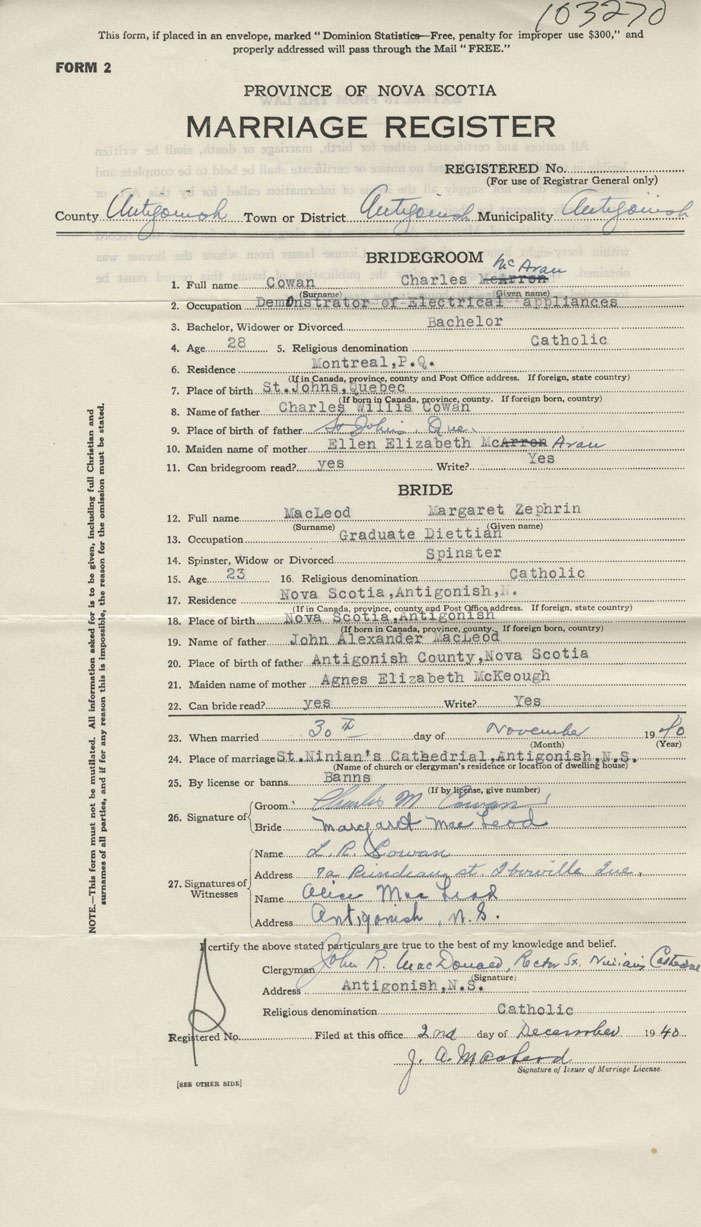 103270
This form, if placed in an envelope, marked "Dominion Statistics—Free, penalty for improper use $300," and
properly addressed will pass through the Mail "FREE."
FORM 2
PROVINCE OF NOVA SCOTIA
MARRIAGE REGISTER
REGISTERED No.
(For use of Registrar General only)
County Antigonish Town or District Antigonish Municipality Antigonish
BRIDEGROOM
McAran
1. Full name Cowan Charles McArron
(Surname) (Given name)
2. Occupation Demonstrator of Electrical appliances
3. Bachelor, Widower or Divorced Bachelor
4. Age 28 5. Religious denomination Catholic
6. Residence Montreal,P.Q.
(If in Canada, province, county and Post Office address. If foreign, state country)
7. Place of birth St.Johns,Quebec
(If born in Canada, province, county. If foreign born, country)
8. Name of father Charles Willis Cowan
9. Place of birth of father St Johns, Que.
10. Maiden name of mother Ellen Elizabeth McArron Aran
11. Can bridegroom read? yes Write? Yes
BRIDE
12. Full name MacLeod Margaret Zephrin
(Surname) (Given name)
13. Occupation Graduate Diettian
14. Spinster, Widow or Divorced Spinster
15. Age 23 16. Religious denomination Catholic
17. Residence Nova Scotia,Antigonish,N.
(If in Canada, province, county and Post Office address. If foreign, state country)
18. Place of birth Nova Scotia,Antigonish
(If born in Canada, province, county. If foreign born, country)
19. Name of father John Alexander MacLeod
20. Place of birth of father Antigonish County,Nova Scotia
21. Maiden name of mother Agnes Elizabeth McKeough
22. Can bride read? yes Write? Yes
23. When married 30th day of November 1940
(Month) (Year)
24. Place of marriage St.Ninian's Cathedrial,Antigonish,N.S.
(Name of church or clergyman's residence or location of dwelling house)
25. By license or banns Banns
(If by license, give number)
26. Signature of
Groom Charles M Cowan
Bride Margaret MacLeod
27. Signatures of Witnesses
Name L. R. Cowan
Address 7a st. Iberville Que.
Name Alice MacLeod
Address Antigonish, N.S.
I certify the above stated particulars are true to the best of my knowledge and belief.
Clergyman John R. MacDonald, Rector St. Ninian's Cathedral
(Signature)
Address Antigonish,N.S.
Religious denomination Catholic
Registered No. Filed at this office 2nd day of December 1940
J. A. MacLeod
Signature of Issuer of Marriage License.
[SEE OTHER SIDE]
NOTE.—This form must not be mutilated. All information asked for is to be given, including full Christian and
surnames of all parties, and if for any reason this is impossible, the reason for the omission must be stated.